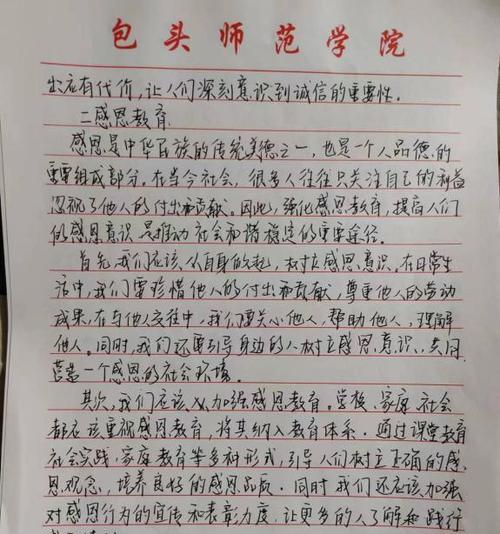 包头师范学院
出应有代价，让人们深刻意识到诚信的重要性。
二感恩教育
感恩是中华民族的传统美德之一，也是一个人品德的
重要组成部分。在当今社会，很多人往往只关注自己的利益
忽视了他人的付出和贡献。因此，强化感恩教育，提高人们
的感恩意识是推动社会和谐稳定的重要途径。
首先，我们应该从自身做起，树立感恩意识，在日常生
活中，我们要珍惜他人的付出和贡献，尊重他人的劳动
成果，在与他人交往中，我们要关心他人，帮助他人，理解
他人。同时，我们还要引导身边的人树立感恩意识，共同
营造一个感恩的社会环境。
其次，我们应该加强感恩教育。学校、家庭、社会
都应该重视感恩教育，将其纳入教育体系。通过课堂教育
社会实践、家庭教育等多种形式，引导人们树立正确的感
恩观念，培养良好的感恩品质。同时我们还应该加强
对感恩行为的宣传和表彰力度，让更多的人了解和践行